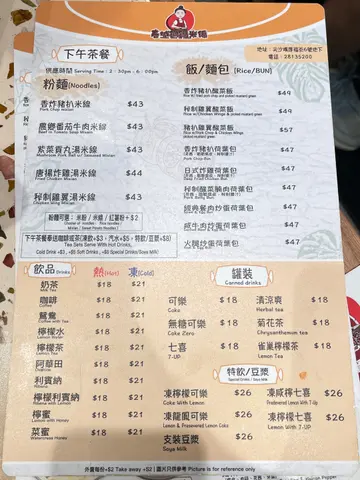 下午茶餐
供應時間 Serving Time : 2:30pm - 6:00pm
地址：尖沙咀厚福街6號地下
電話：28135200
粉麵(Noodles)
香炸豬扒米線 $43
Pork Chop Mixian
農鄉番茄牛肉米線 $43
紫菜貢丸湯米線 $43
唐揚炸雞湯米線 $44
Fried Chicken Mixian
秘制雞翼湯米線 $43
粉麵可選：米粉 / 米線 / 紅薯粉 + $2
下午茶餐奉送咖啡或茶(凍飲+$3，汽水+$5，特飲/豆漿+$8)
Tea Sets Serve With Hot Drinks,
Cold Drink +$3 , Soft Drinks +$5, +$8 Special Drinks/Soya Milk)
飯/麵包 (Rice/BUN)
香炸豬扒酸菜飯 $49
秘制雞翼酸菜飯 $49
豬扒雞翼酸菜飯 $57
香炸豬扒荷葉包 $47
日式炸雞荷葉包 $47
秘制酸菜腩肉荷葉包 $47
經典蔥肉炒蛋荷葉包 $47
咸牛肉炒蛋荷葉包 $47
火腿炒蛋荷葉包 $47
飲品 Drinks 熱(Hot) 凍(Cold)
奶茶 $18 $21
Milk Tea
咖啡 $18 $21
Coffee
鴛鴦 $18 $21
Coffee with Tea
檸檬水 $18 $21
Lemon Water
檸檬茶 $18 $21
Lemon Tea
阿華田 $18 $21
Ovaltine
利賓納 $18 $21
Ribena
檸檬利賓納 $18 $21
Ribena with Lemon
檸蜜 $18 $21
Lemon with Honey
菜蜜 $18 $21
Watercress Honey
罐裝
Canned drinks
可樂 $18
Coke
無糖可樂 $18
Coke Zero
七喜 $18
7-UP
清涼爽 $18
Herbal tea
菊花茶 $18
Chrysanthemum tea
雀巢檸檬茶 $18
Lemon Tea
特飲/豆漿
Special Drinks / Soy Milk
凍檸檬可樂 $26
Coke With Lemon
凍龍鳳可樂 $26
Lemon & Preserved Lemon Coke
支裝豆漿 $26
Soya Milk
凍咸檸七喜 $26
Preserved Lemon With 7-UP
凍檸檬七喜 $26
Lemon With 7-UP
外賣每份+$2 Take away +$2 | 圖片只供參考 Picture is for reference only